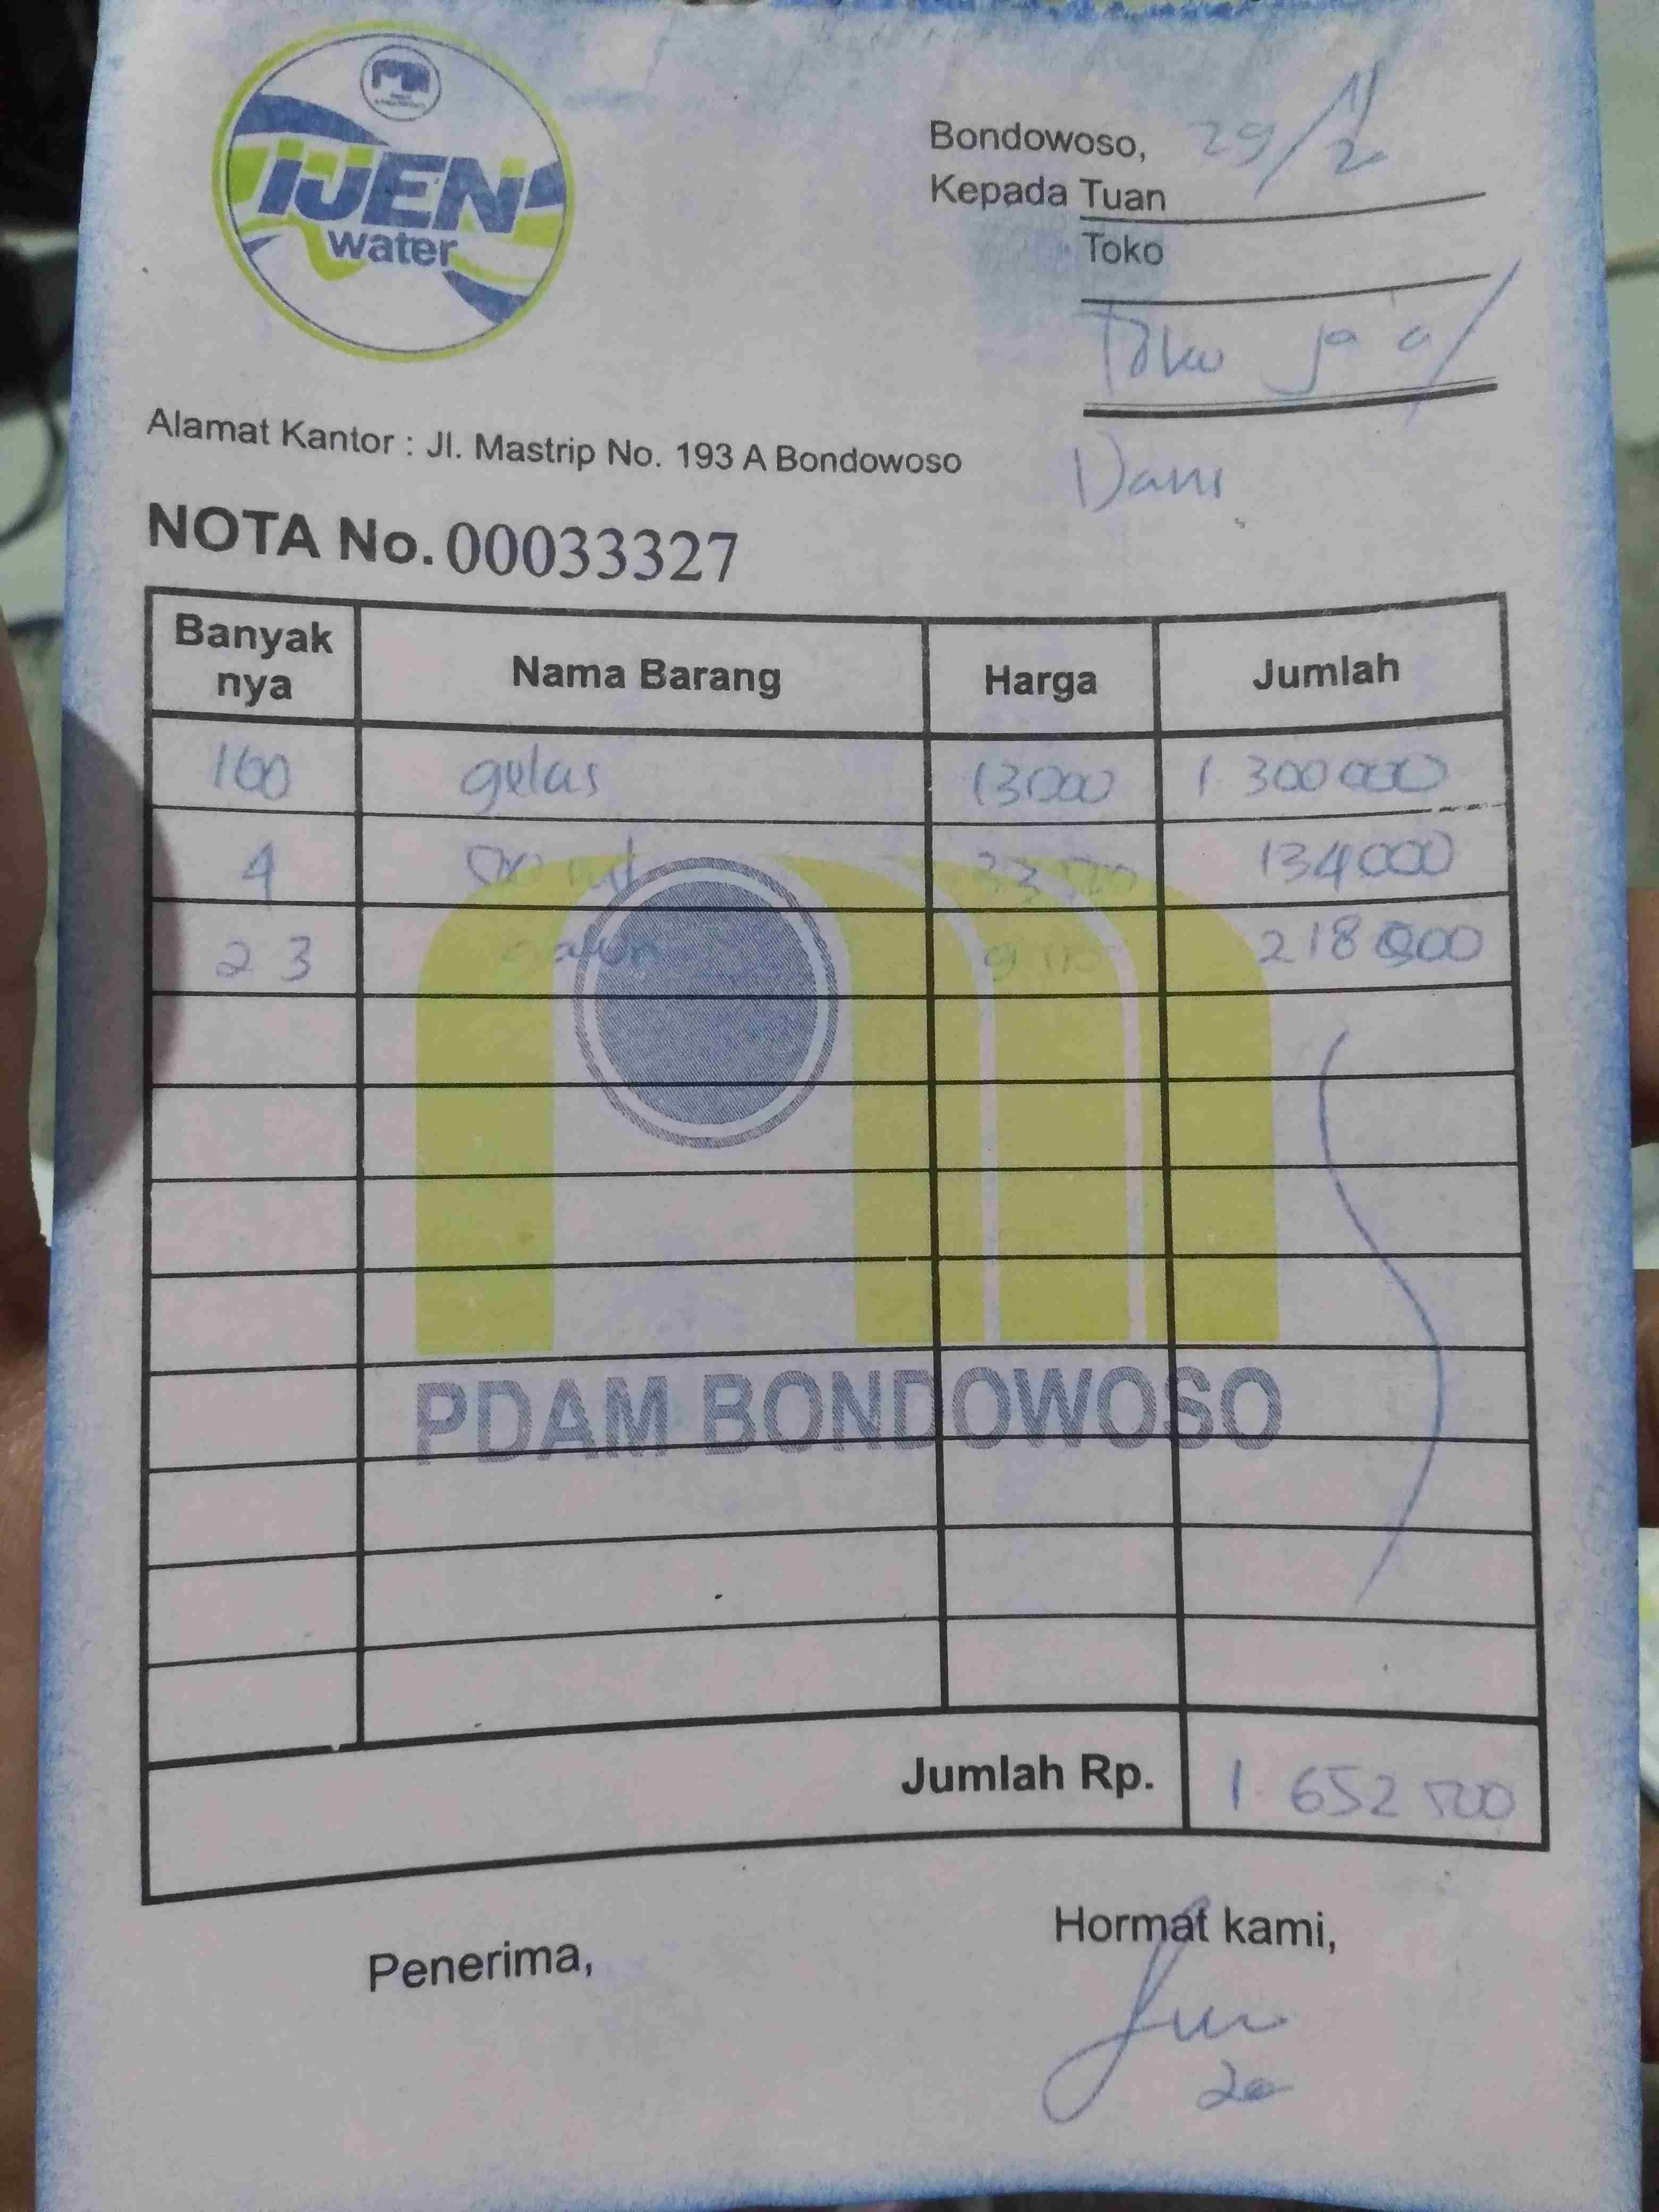 IJEN
water
Bondowoso, 29/11/20
Kepada Tuan
Toko
Toko ja'a/
Dani
Alamat Kantor : Jl. Mastrip No. 193 A Bondowoso
NOTA No. 00033327
Banyak nya Nama Barang Harga Jumlah
100 gelas 13000 1.300000
4 134000
23 218500
PDAM BONDOWOSO
Jumlah Rp. 1.652500
Penerima, Hormat kami,